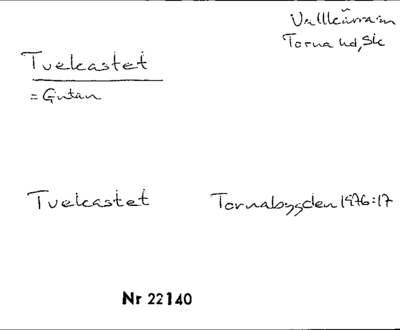 Vallkärra sn
Torna hd, Sk
Tvekastet
= Gutan
Tvekastet Tornabygden 1976:17
Nr 22140